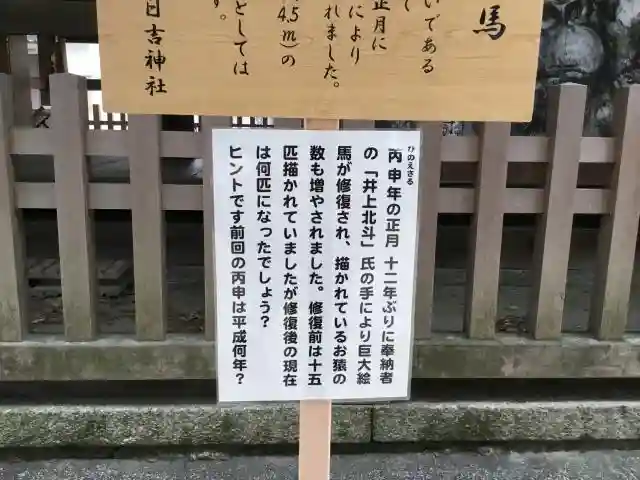 馬
いである
て
正月に
により
れました。
4.5m)の
としては
す。
日吉神社
ひのえさる
丙申年の正月 十二年ぶりに奉納者
の「井上北斗」氏の手により巨大絵
馬が修復され、描かれているお猿の
数も増やされました。修復前は十五
匹描かれていましたが修復後の現在
は何匹になったでしょう?
ヒントです前回の丙申は平成何年?